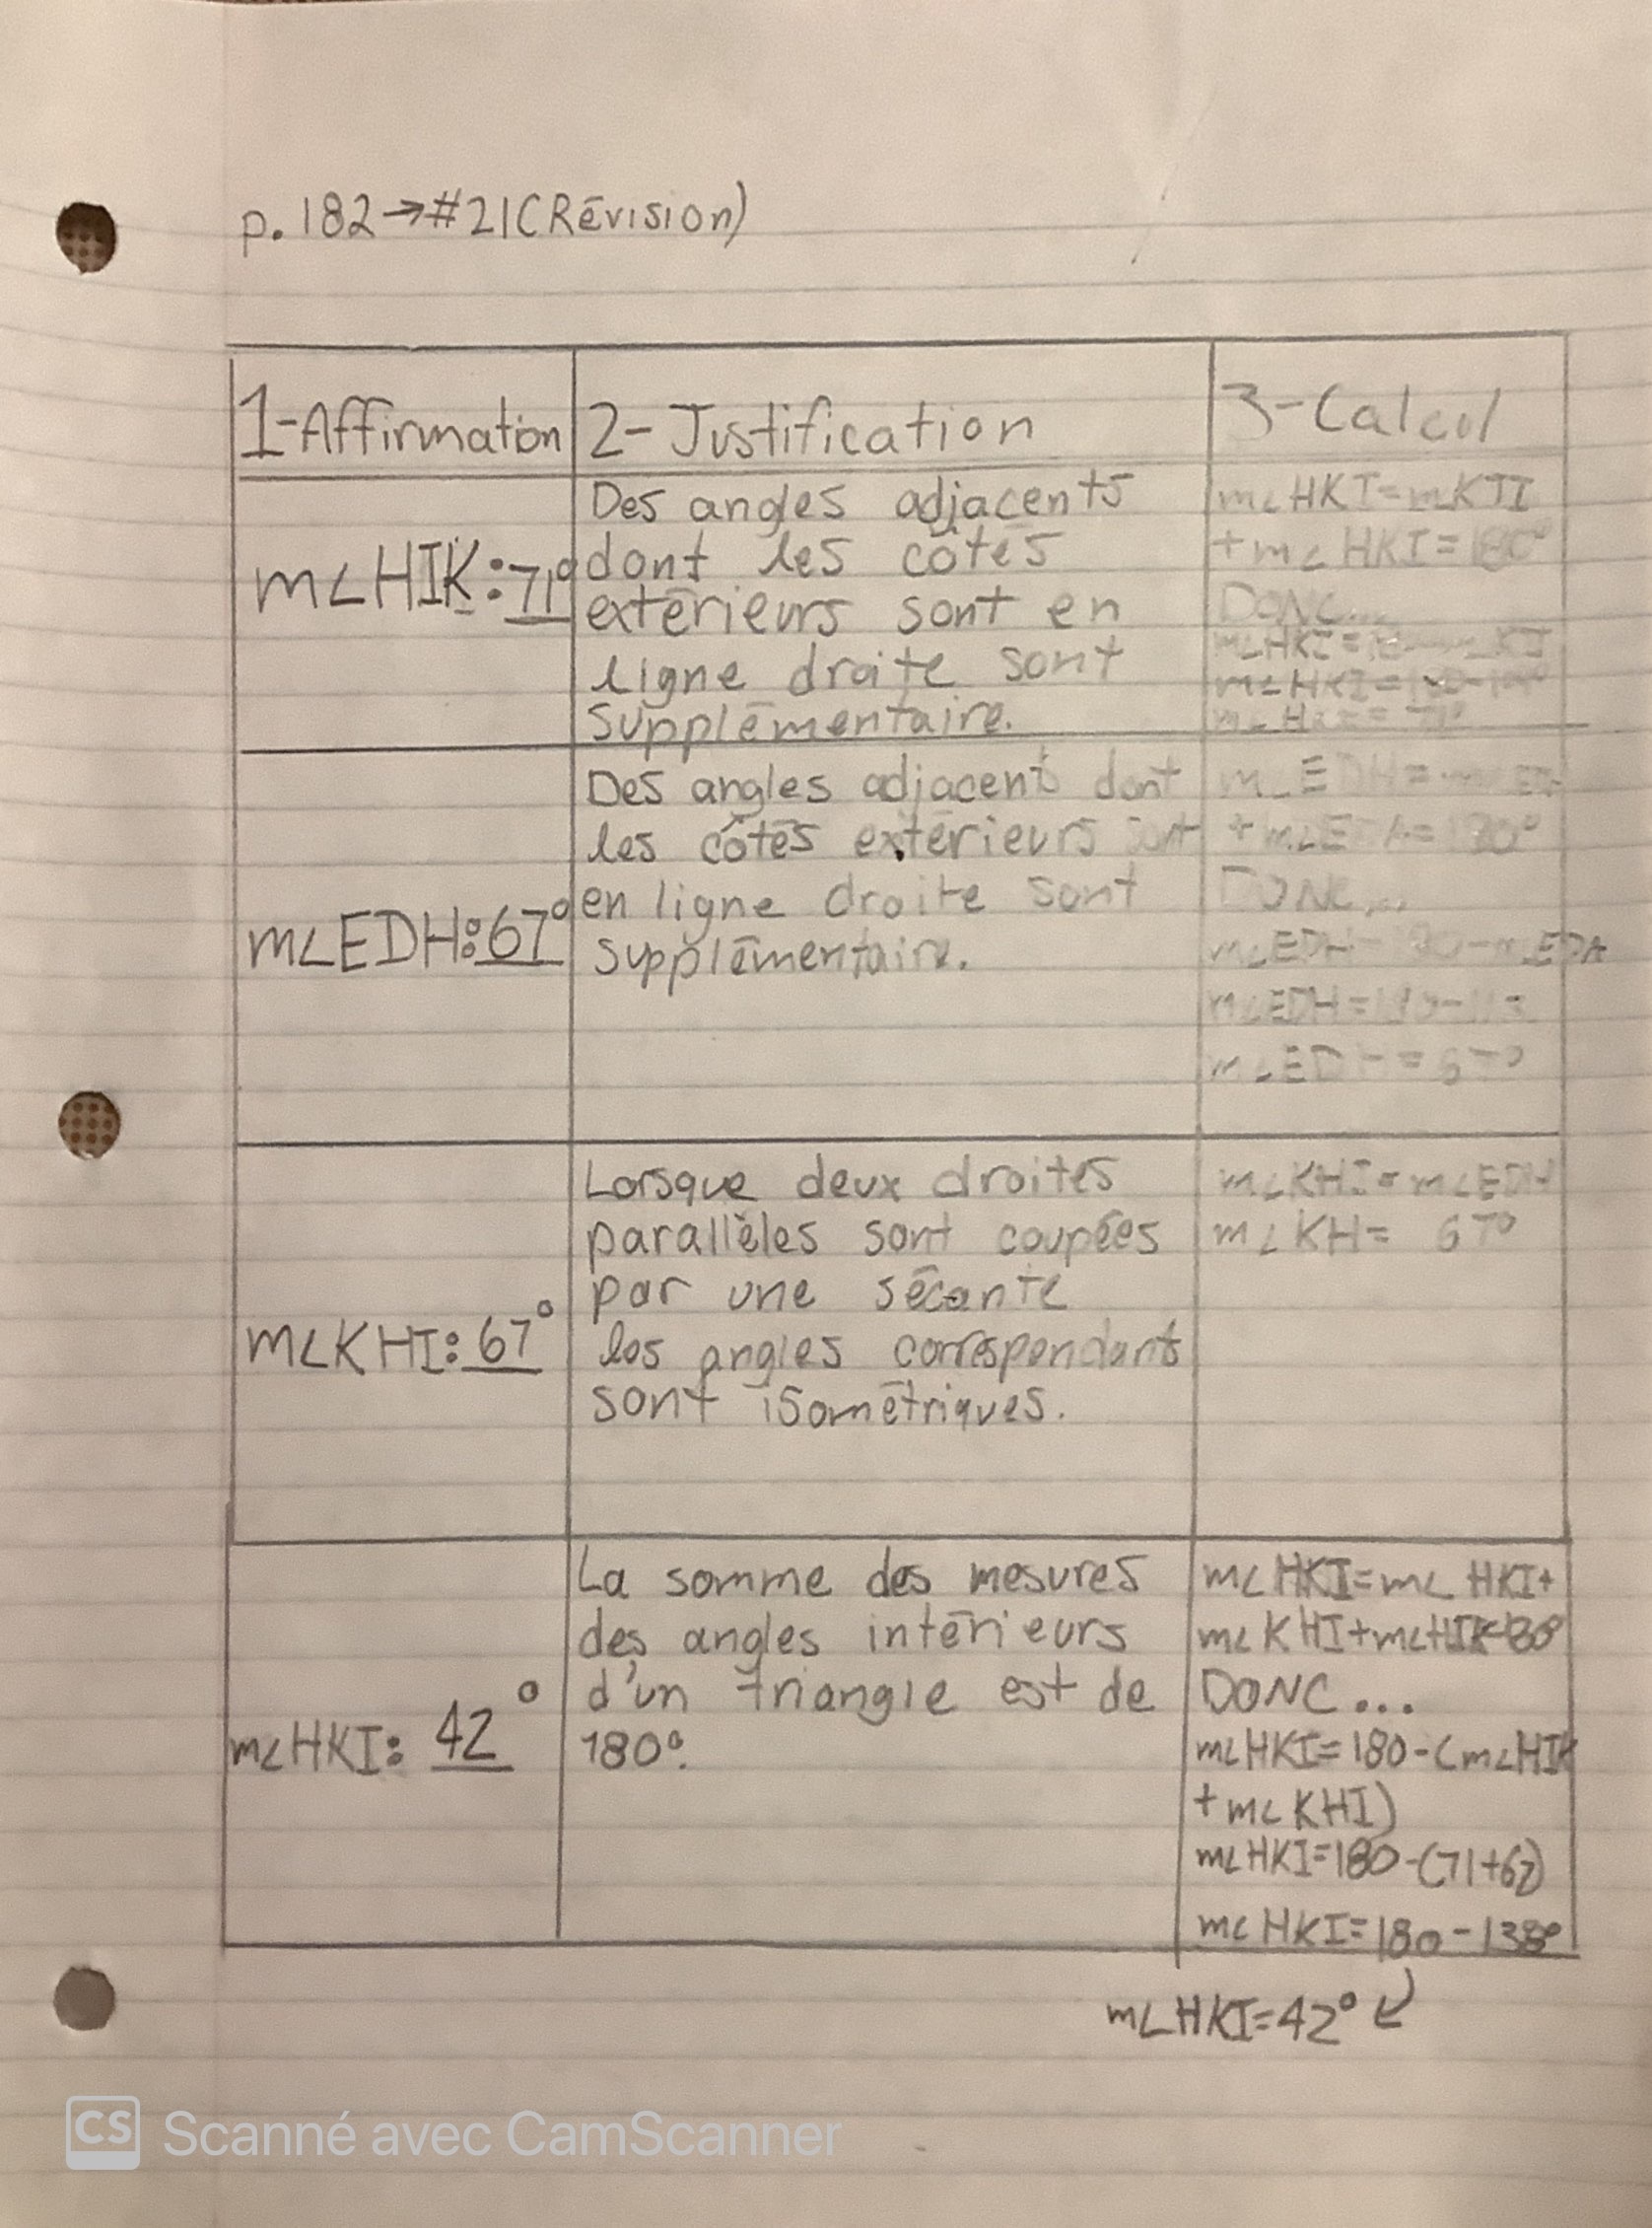 p. 182→#21(Révision)
1-Affirmation
2-Justification
3-Calcul
m∠HIK:71°
Des angles adjacents
dont les côtés
extérieurs sont en
ligne droite sont
supplémentaire.
+m∠HKI=180°
DONC...
m∠EDH:67°
Des angles adjacent dont
les côtés extérieurs sont
en ligne droite sont
supplémentaire.
+m∠EDA=180°
DONC...
m∠EDH=180-m∠EDA
m∠EDH=180-113
m∠EDH=67°
m∠KHI:67°
Lorsque deux droites
parallèles sont coupées
par une sécante
les angles correspondants
sont isométriques.
m∠KHI=m∠EDH
m∠KH= 67°
m∠HKI: 42°
La somme des mesures
des angles intérieurs
d'un triangle est de
180°.
m∠HKI=m∠HKI+
m∠KHI+m∠HIK=180°
DONC...
m∠HKI=180-(m∠HIK
+m∠KHI)
m∠HKI=180-(71+67)
m∠HKI=180-138°
m∠HKI=42°
CS Scanné avec CamScanner